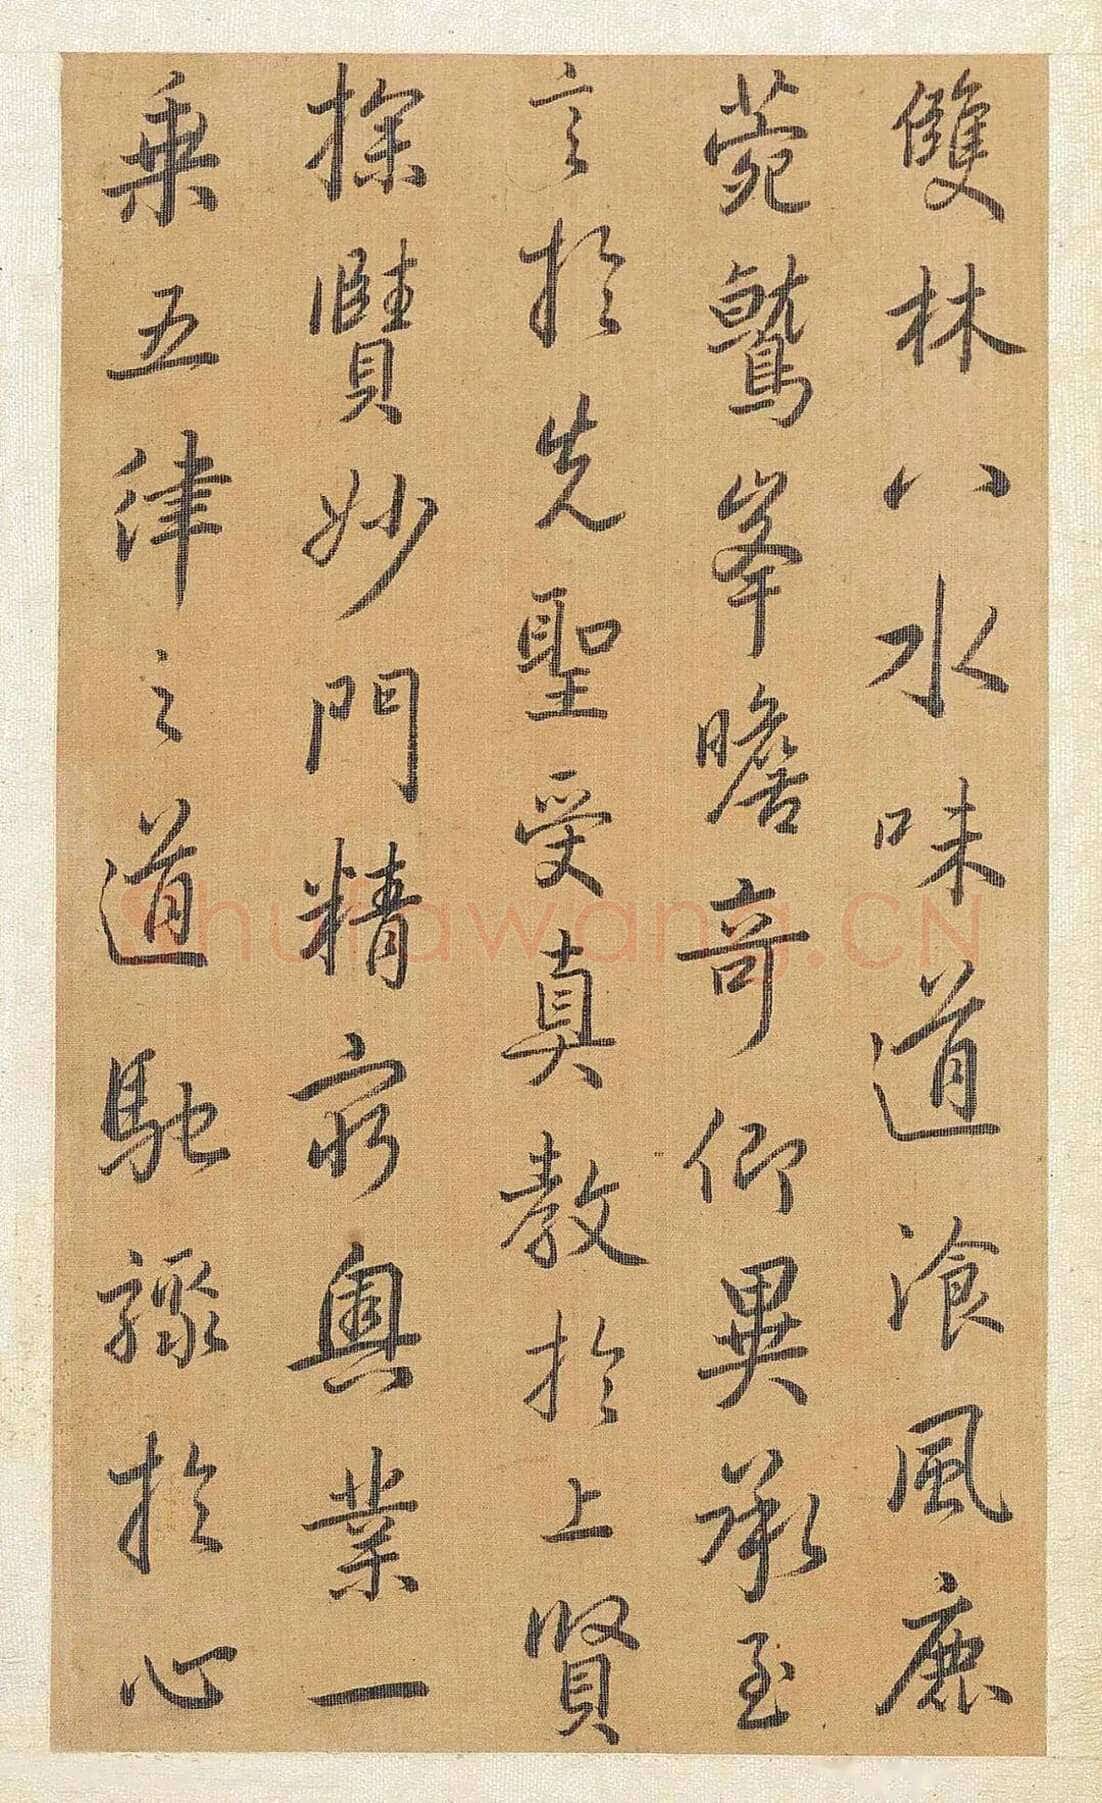 雙林八水味道飡風鹿
菀鷲峯瞻奇仰異承至
言於先聖受真教於上賢
探賾妙門精窮奧業一
乘五律之道馳驟於心
Shufawang.CN